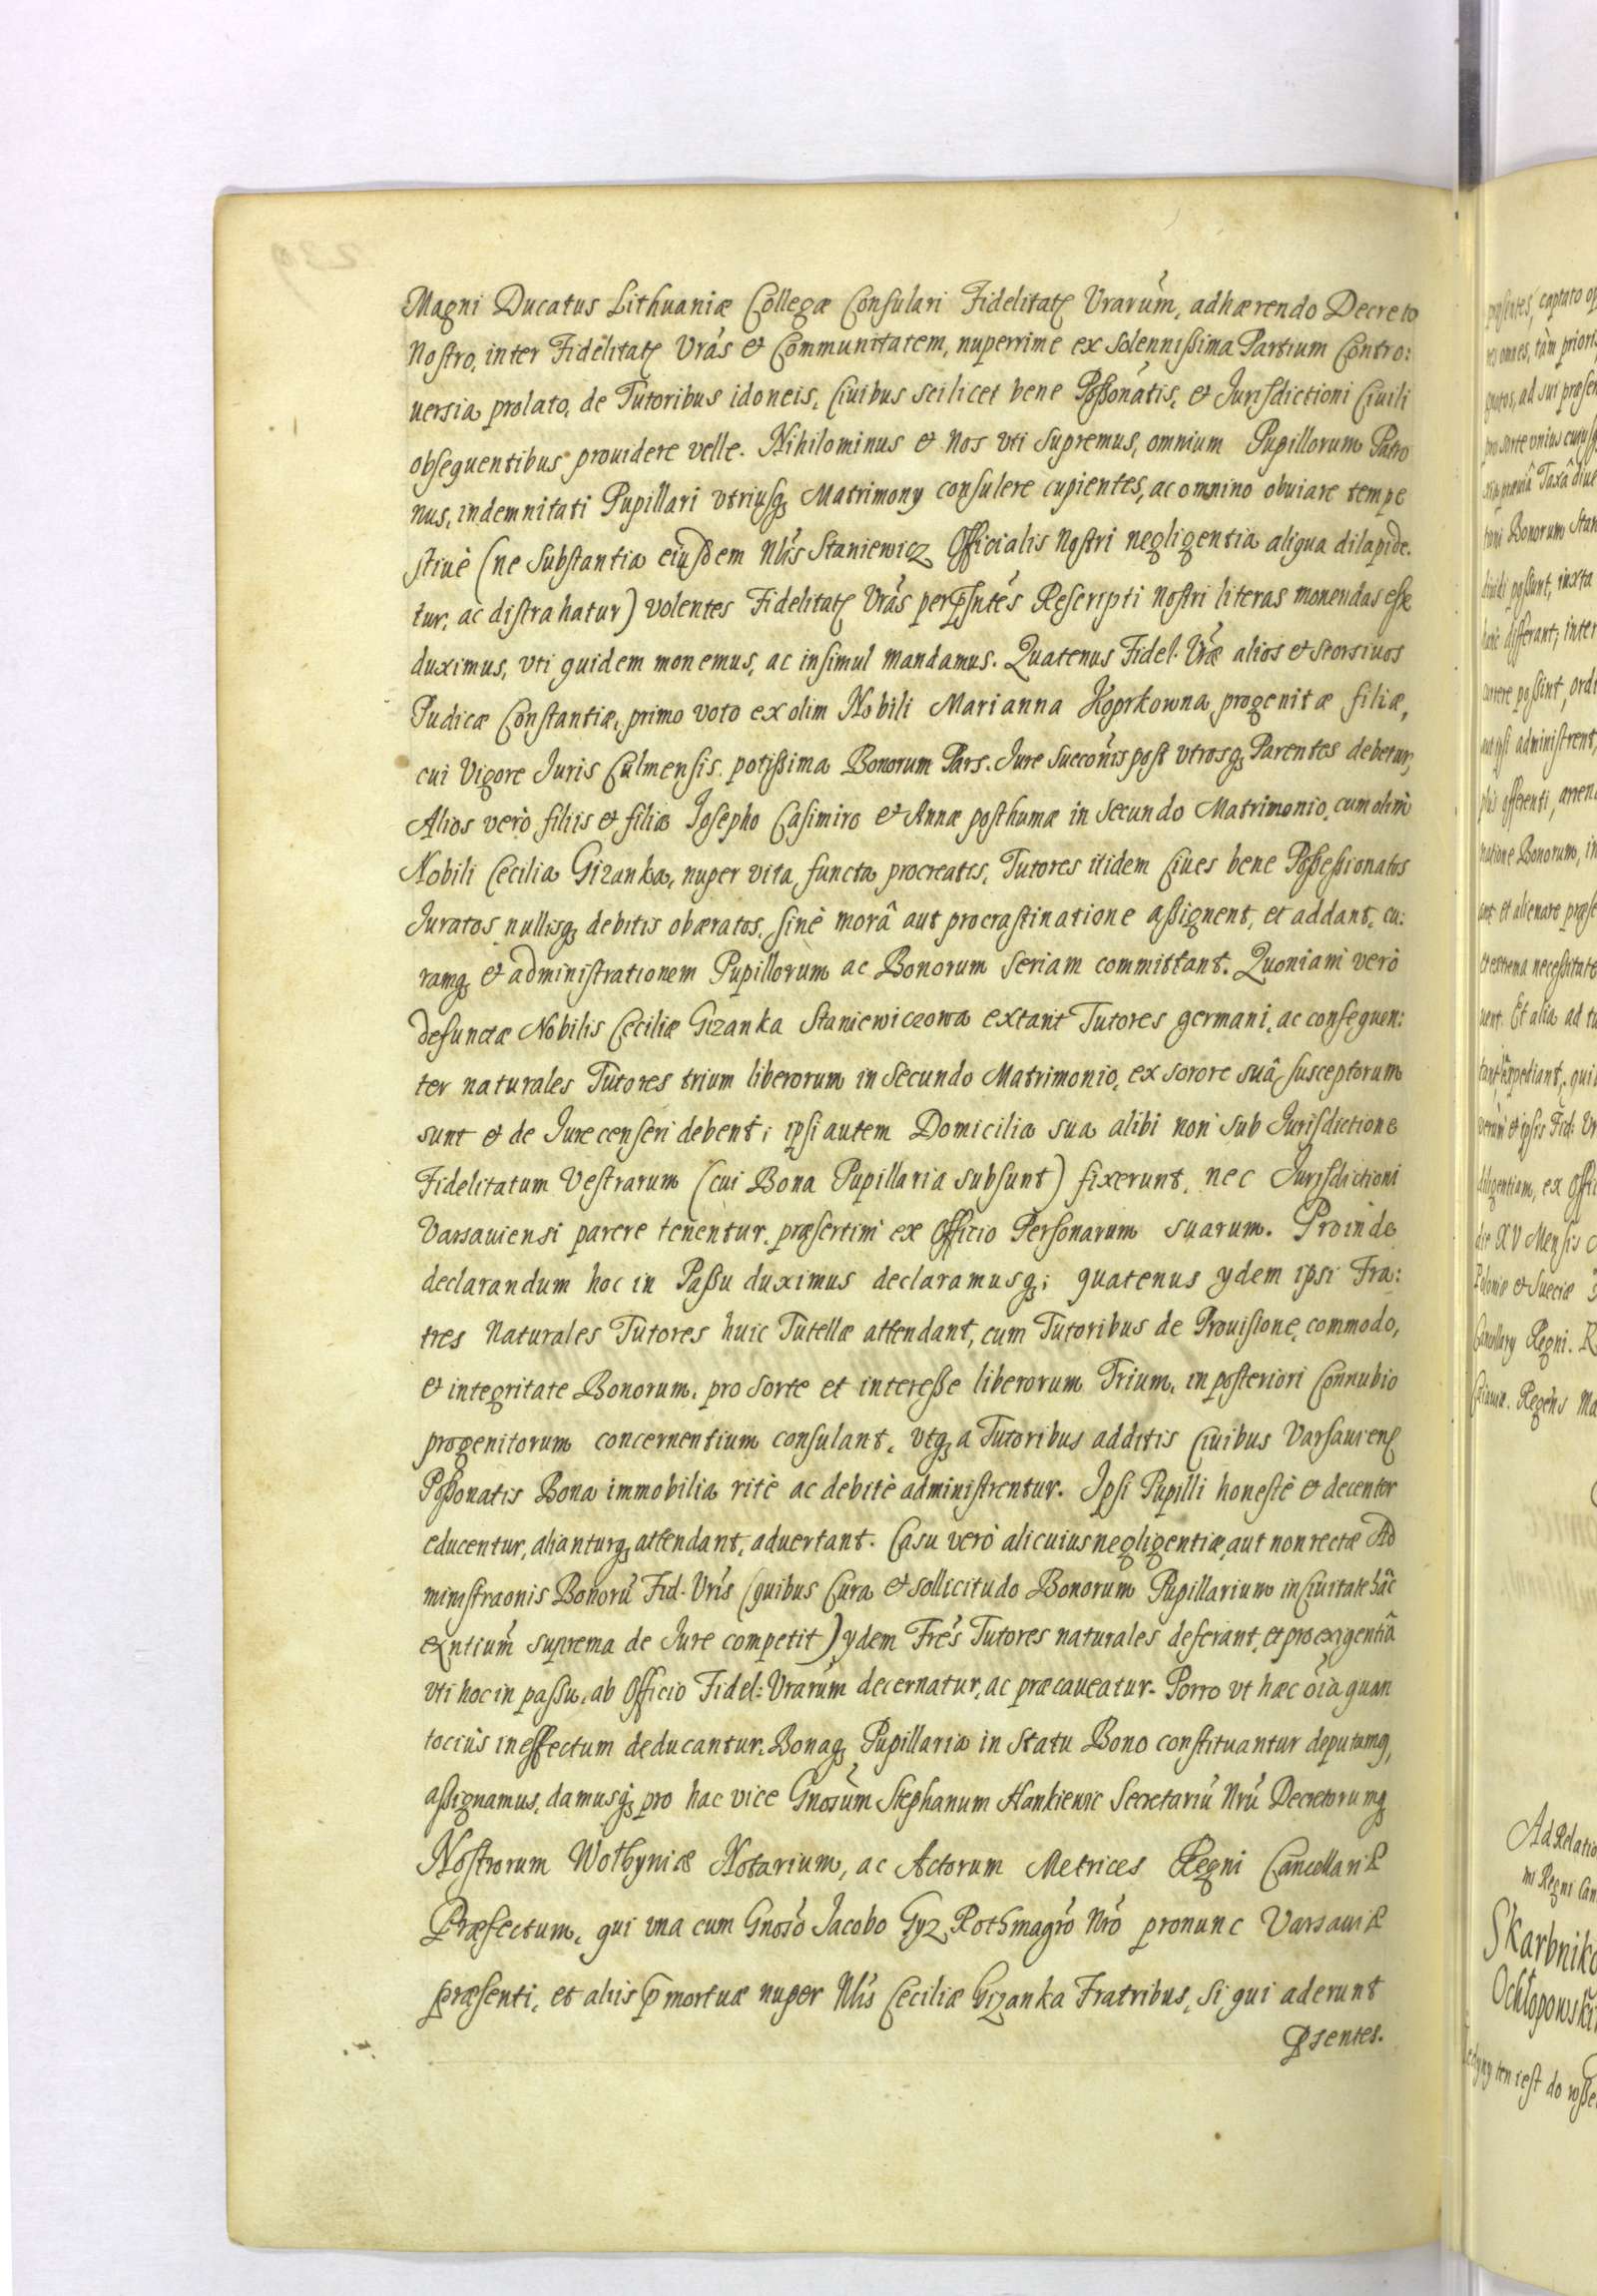 Magni Ducatus Lithuaniæ Collegæ Consulari Fidelitatę Vrarum̃, adhærendo Decreto
Nostro, inter Fidelitatę Vrás et Communitatem, nuperrime ex Solennissima Partium Contro:
uersia prolato, de Tutoribus idoneis, Ciuibus scilicet bene Possonatis, et Jurisdictioni Ciuili
obsequentibus prouidere velle. Nihilominus et Nos vti Supremus, omnium Pupillorum Patro
nus, indemnitati Pupillari vtriusq Matrimony consulere cupientes, ac omnino obuiare tempe
stiuè (ne Substantia eiusdem Nlis Staniewicz Officialis Nostri negligentia aliqua dilapide.
tur, ac distrahatur) volentes Fidelitatę Vrás per pśntes Rescripti Nostri literas monendas esse
duximus, vti quidem monemus, ac insimul mandamus. Quatenus Fidel. Vræ alios et seorsiuos
Pudicæ Constantiæ, primo voto ex olim Nobili Marianna Koprkowna progenitæ filiæ,
cui Vigore Juris Culmensis potissima Bonorum Pars. Jure Succonis post vtrosq Parentes debetur,
Alios verò filiis et filia Josepho Casimiro et Annæ posthumæ in Secundo Matrimonio, cum olim
Nobili Cecilia Gizanka, nuper vita functa procreatis, Tutores itidem Ciues bene Possessionatos
Juratos nullisq debitis obæratos, sinè morâ aut procrastinatione assignent, et addant, cu:
ramq et administrationem Pupillorum ac Bonorum Seriam committant. Quoniam verò
defunctæ Nobilis Ceciliæ Gizanka Staniewiczowa extant Tutores germani, ac consequen:
ter naturales Tutores trium liberorum in Secundo Matrimonio, ex sorore suâ susceptorum
sunt et de Jure censeri debent; ipsi autem Domicilia sua alibi non sub Jurisdictione
Fidelitatum Vestrarum (cui Bona Pupillaria subsunt) fixerunt, nec Jurisdictioni
Varsauiensi parere tenentur, præsertim ex Officio Personarum suarum. Proinde
declarandum hoc in Passu duximus declaramusq; quatenus ydem ipsi Fra:
tres Naturales Tutores huic Tutellæ attendant, cum Tutoribus de Prouisione, commodo,
et integritate Bonorum, pro Sorte et interesse liberorum Trium, in posteriori Connubio
progenitorum concernentium consulant, vtq a Tutoribus additis Ciuibus Varsauienę
Possonatis Bona immobilia ritè ac debitè administrentur. Ipsi Pupilli honestè et decenter
educentur, alianturq, attendant, aduertant. Casu verò alicuius negligentiæ, aut non rectæ Ad
ministraonis Bonorũ Fid. Vris (quibus Cura et sollicitudo Bonorum Pupillarium in Ciuitate hâc
exntium̃ suprema de Jure competit) ydem Frés Tutores naturales deferant, et pro exigentiâ
vti hoc in passu, ab Officio Fidel: Vrarum̃ decernatur, ac præcaueatur. Porro vt hæc oĩa quan
tociùs in effectum deducantur, Bonaq Pupillaria in Statu Bono constituantur deputamq,
assignamus, damusq pro hac vice Gnosum̃ Stephanum Hankiewic Secretariũ Nrũ Decretorumq
Nostrorum Wołhyniæ Notarium, ac Actorum Metrices Regni Cancellariæ
Præfectum, qui vna cum Gnoso Jacobo Gyz Rothmagro Nro pronunc Varsauiæ
præsenti, et aliis p̃mortuæ nuper Nlis Ceciliæ Gizanka Fratribus, si qui aderunt
p̃sentes.